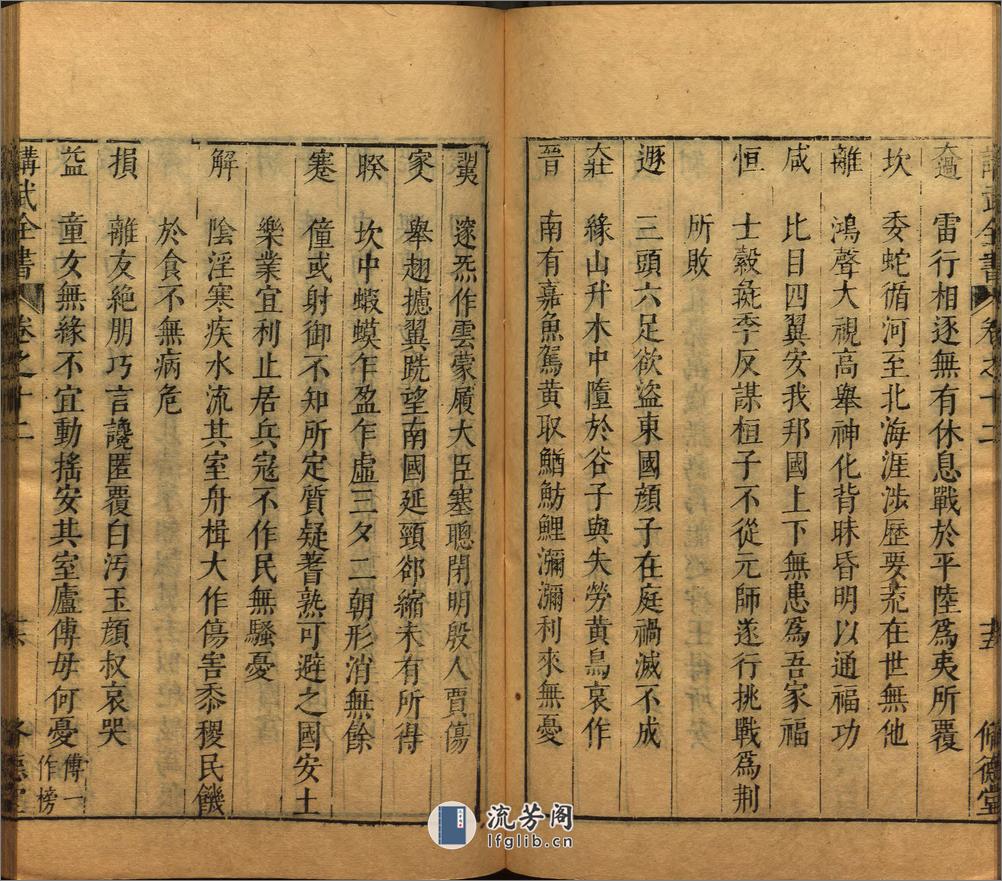 講武全書 卷之十二 十五 脩德堂
大過 雷行相逐無有休息戰於平陸為夷所覆
坎 委蛇循河至北海涯涉歷要荒在世無他
離 鴻聲大視高舉神化背昧昏明以通福功
咸 比目四翼安我邦國上下無患為吾家福
恒 士穀蕤季反謀桓子不從元師遂行挑戰為荆
所敗
遯 三頭六足欲盜東國顏子在庭禍滅不成
大壯 緣山升木中墮於谷子與失勞黃鳥哀作
晉 南有嘉魚駕黃取鰌魴鯉瀰瀰利來無憂
邃炁作雲蒙履大臣塞聰閉明殷人賈傷
家 舉趐攄翼跣望南國延頸郤縮未有所得
睽 坎中蝦蟆乍盈乍虛三夕二朝形消無餘
蹇 僮或射御不知所定質疑蓍熟可避之國安土
樂業宜利止居兵寇不作民無騷憂
解 陰淫寒疾水流其室舟楫大作傷害黍稷民饑
於食不無病危
損 離友絶朋巧言讒匿覆白汚玉顏叔哀哭
益 童女無緣不宜動搖安其室廬傅母何憂 傳一作榜
講武全書 卷之十二 十六 脩德堂
流芳阁
lfglib.cn